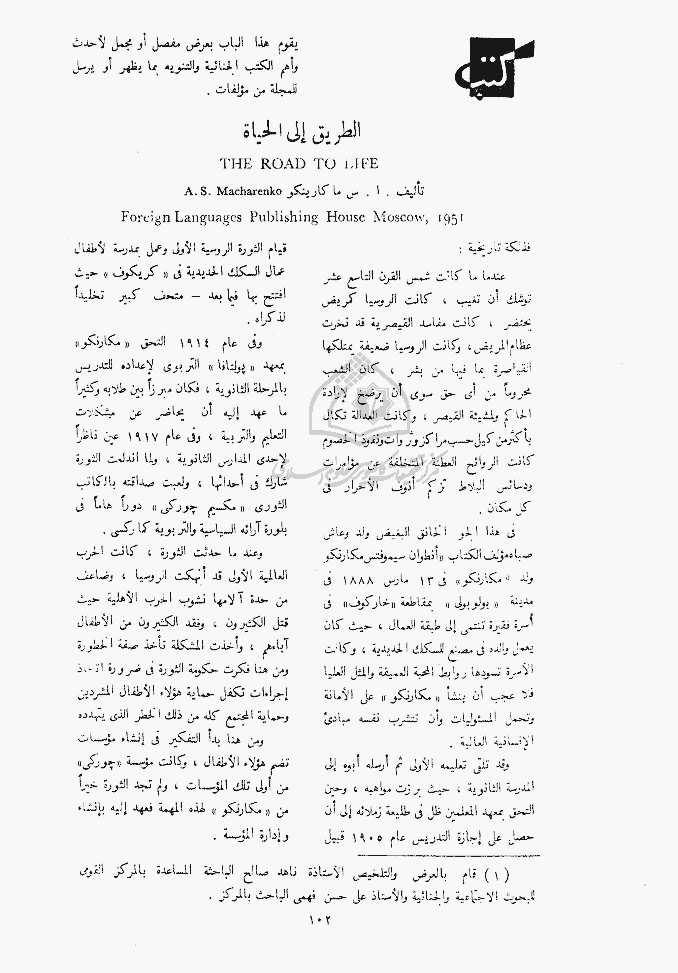 كتب
يقوم هذا الباب بعرض مفصل أو مجمل لأحدث
وأهم الكتب الجنائية والتنويه بما يظهر أو يرسل
للمجلة من مؤلفات .
الطريق إلى الحياة
THE ROAD TO LIFE
تأليف . ا . س ماكارينكو A. S. Macharenko
Foreign Languages Publishing House Moscow, 1951
فذلكة تاريخية :
عندما ما كانت شمس القرن التاسع عشر
توشك أن تغيب ، كانت الروسيا كريض
يحتضر ، كانت مفاسد القيصرية قد نخرت
عظام المريض، وكانت الروسيا ضعيفة يمتلكها
القياصرة بما فيها من بشر ، كان الشعب
محروماً من أى حق سوى أن يرضخ لإرادة
الحاكم ولمشيئة القيصر ، وكانت العدالة تكال
بأكثر من كيل حسب مراكز وثروات ونفوذ الخصوم
كانت الروائح العطنة المتخلفة عن مؤامرات
ودسائس البلاط تزكم أنوف الأحرار فى
كل مكان .
فى هذا الجو الخانق البغيض ولد وعاش
صباه مؤلف الكتاب «أنطوان سيموفتس مكارنكو
ولد «مكارنكو» فى ١٣ مارس ١٨٨٨ فى
مدينة « بولوبولى » بمقاطعة «خاركوف» فى
أسرة فقيرة تنتمى إلى طبقة العمال ، حيث كان
يعمل والده فى مصنع للسكك الحديدية ، وكانت
الأسرة تسودها روابط المحبة العميقة والمثل العليا
فلا عجب أن ينشأ «مكارنكو» على الأمانة
وتحمل المسئوليات وأن تتشرب نفسه مبادئ
الإنسانية العالية .
وقد تلقى تعليمه الأولى ثم أرسله أبوه إلى
المدرسة الثانوية ، حيث برزت مواهبه ، وحين
التحق بمعهد المعلمين ظل فى طليعة زملائه إلى أن
حصل على إجازة التدريس عام ١٩٠٥ قبيل
قيام الثورة الروسية الأولى وعمل بمدرسة لأطفال
عمال السكك الحديدية فى « كريكوف » حيث
افتتح بها فيما بعد – متحف كبير تخليداً
لذكراه .
وفى عام ١٩١٤ التحق «مكارنكو»
بمعهد «بولتافا» التربوى لإعداده للتدريس
بالمرحلة الثانوية ، فكان مبرزاً بين طلابه وكثيراً
ما عهد إليه أن يحاضر عن مشكلات
التعليم والتربية ، وفى عام ١٩١٧ عين ناظراً
لإحدى المدارس الثانوية ، ولما اندلعت الثورة
شارك فى أحداثها ، ولعبت صداقته بالكاتب
الثورى «مكسيم چوركى» دوراً هاماً فى
بلورة آرائه السياسية والتربوية كماركسى .
وعند ما حدثت الثورة ، كانت الحرب
العالمية الأولى قد أنهكت الروسيا ، وضاعف
من حدة آلامها نشوب الحرب الأهلية حيث
قتل الكثيرون ، وفقد الكثيرون من الأطفال
آباءهم ، وأخذت المشكلة تأخذ صفة الخطورة
ومن هنا فكرت حكومة الثورة فى ضرورة اتخاذ
إجراءات تكفل حماية هؤلاء الأطفال المشردين
وحماية المجتمع كله من ذلك الخطر الذى يتهدده
ومن هنا بدأ التفكير فى إنشاء مؤسسات
تضم هؤلاء الأطفال ، وكانت مؤسسة «چوركى»
من أولى تلك المؤسسات ، ولم تجد الثورة خيراً
من «مكارنكو» لهذه المهمة فعهد إليه بإنشاء
وإدارة المؤسسة .
(١) قام بالعرض والتلخيص الأستاذة ناهد صالح الباحثة المساعدة بالمركز القومى
للبحوث الاجتماعية والجنائية والأستاذ على حسن فهمى الباحث بالمركز .
١٠٢